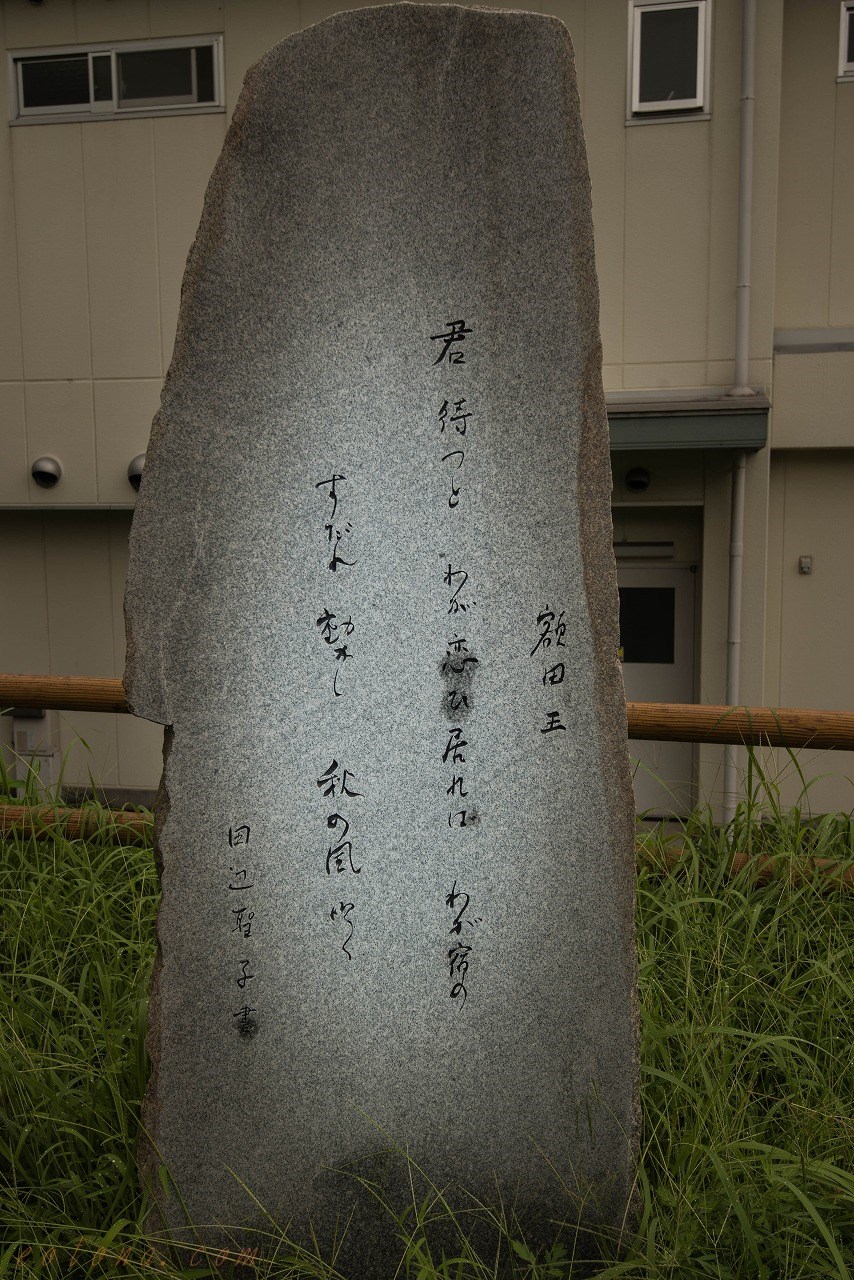 額田王
君待つと わが恋ひ居れば わが宿の
すだれ動かし 秋の風吹く
田辺聖子書